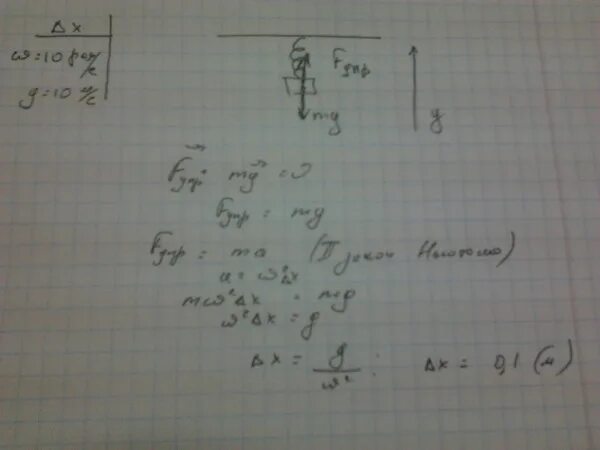 Δx
ω = 10 рад/с
g = 10 м/с
Fупр
mg
y
Fупр + mg = 0
Fупр = mg
Fупр = ma (II закон Ньютона)
a = ω²Δx
mω²Δx = mg
ω²Δx = g
Δx = g/ω² ; Δx = 0,1 (м)